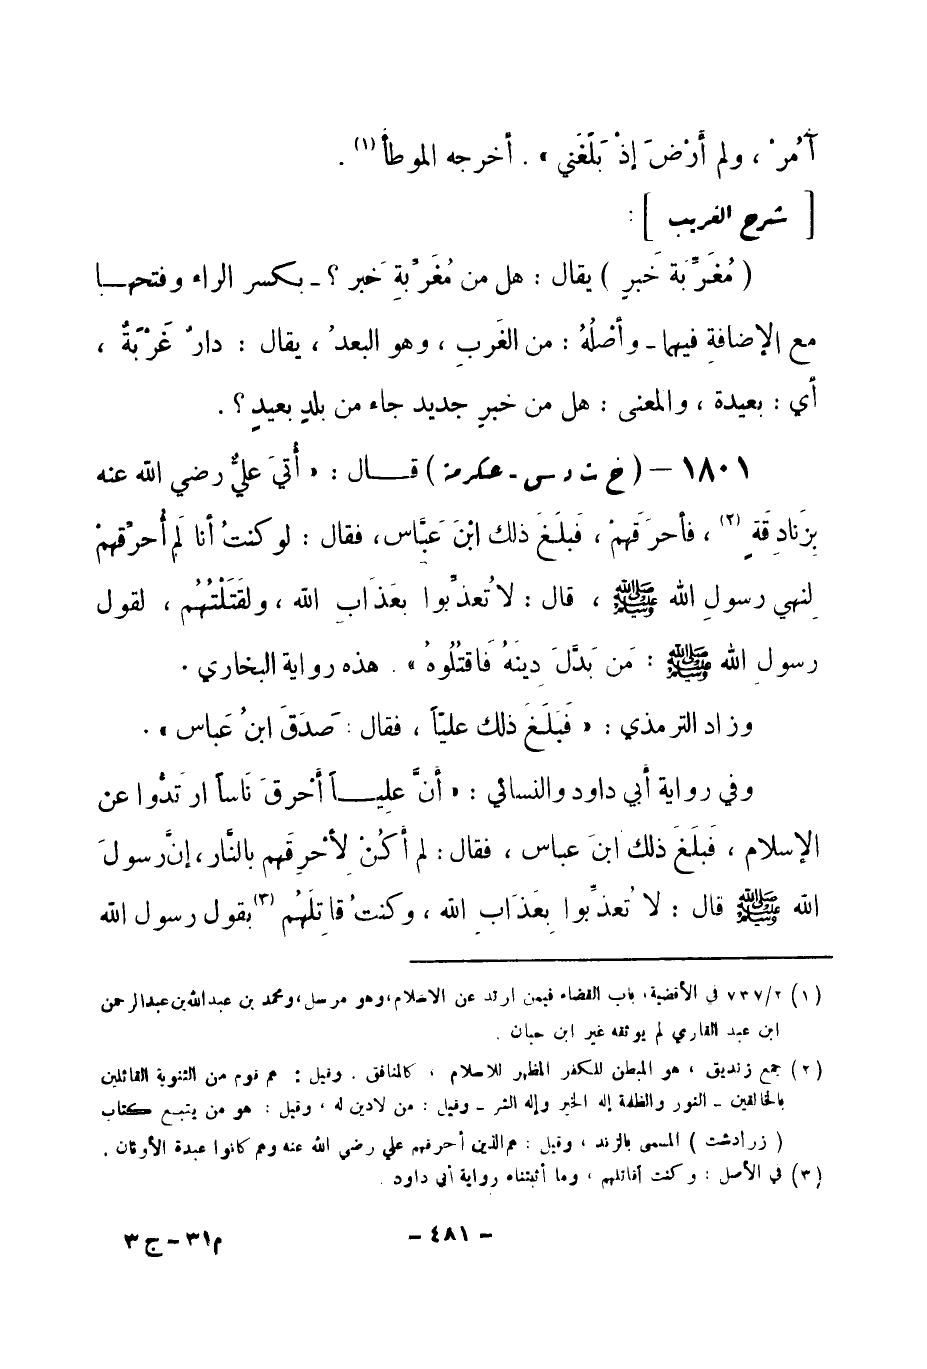 آمُرْ ، ولم أَرْضَ إذْ بَلَغَني » . أخرجه الموطأ (١) .
[ شرح الغريب ] :
( مُغَرِّبَة خَبرٍ ) يقال : هل من مُغَرِّبةِ خَبر ؟ ـ بكسر الراء وفتحهـا
مع الإضافةِ فيهما ـ وأصْلُهُ : من الغَربِ ، وهو البعدُ ، يقال : دارٌ غَرْبَةٌ ،
أي : بعيدة ، والمعنى : هل من خبرٍ جديد جاء من بلدٍ بعيدٍ ؟ .
١٨٠١ – ( خ ت د س - عكرمة ) قـال : « أُتيَ عليٌّ رضي الله عنه
بزَنادِقَةٍ (٢) ، فأحرَقَهمْ ، فَبلَغَ ذلك ابْنَ عَبَّاس، فقال : لو كنتُ أنا لَم أُحرِّقهمْ
لِنهي رسولِ الله ﷺ ، قال : لا تُعذِّبوا بعَذَابِ الله ، ولقَتَلْتُهُم ، لقول
رسولِ الله ﷺ : مَن بَدَّلَ دِينَهُ فَاقتُلُوهُ » . هذه رواية البخاري .
وزاد الترمذي : « فَبَلَغَ ذلك عليّاً ، فقال : صَدَقَ ابنُ عَباس » .
وفي رواية أبي داود والنسائي : « أنَّ عليـاً أحْرقَ نَاساً ارتَدُّوا عن
الإسلام ، فَبلَغَ ذلك ابنَ عباس ، فقال : لم أكُنْ لأحْرِقَهم بالنَّار ، إنَّ رسولَ
الله ﷺ قال : لا تُعذِّبوا بِعَذَابِ الله ، وكنتُ قاتِلَهُم (٣) بقول رسول الله
(١) ٧٣٧/٢ في الأقضية، باب القضاء فيمن ارتد عن الاسلام، وهو مرسل، ومحمد بن عبدالله بن عبدالرحمن
ابن عبد القاري لم يوثقه غير ابن حبان .
(٢) جمع زنديق ، هو المبطن للكفر المظهر للاسلام ، كالمنافق . وقيل : هم قوم من الثنوية القائلين
بالخالقين ـ النور والظلمة إله الخير وإله الشر ـ وقيل : من لادين له ، وقيل : هو من يتبع كتاب
( زرادشت ) المسمى بالزند ، وقيل : هم الذين أحرقهم علي رضي الله عنه وهم كانوا عبدة الأوثان .
(٣) في الأصل : وكنت أقاتلهم ، وما أثبتناه رواية أبي داود .
- ٤٨١ -
م٣١ - ج ٣